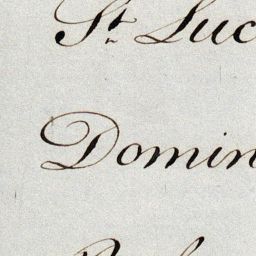 St. Luc
Domin